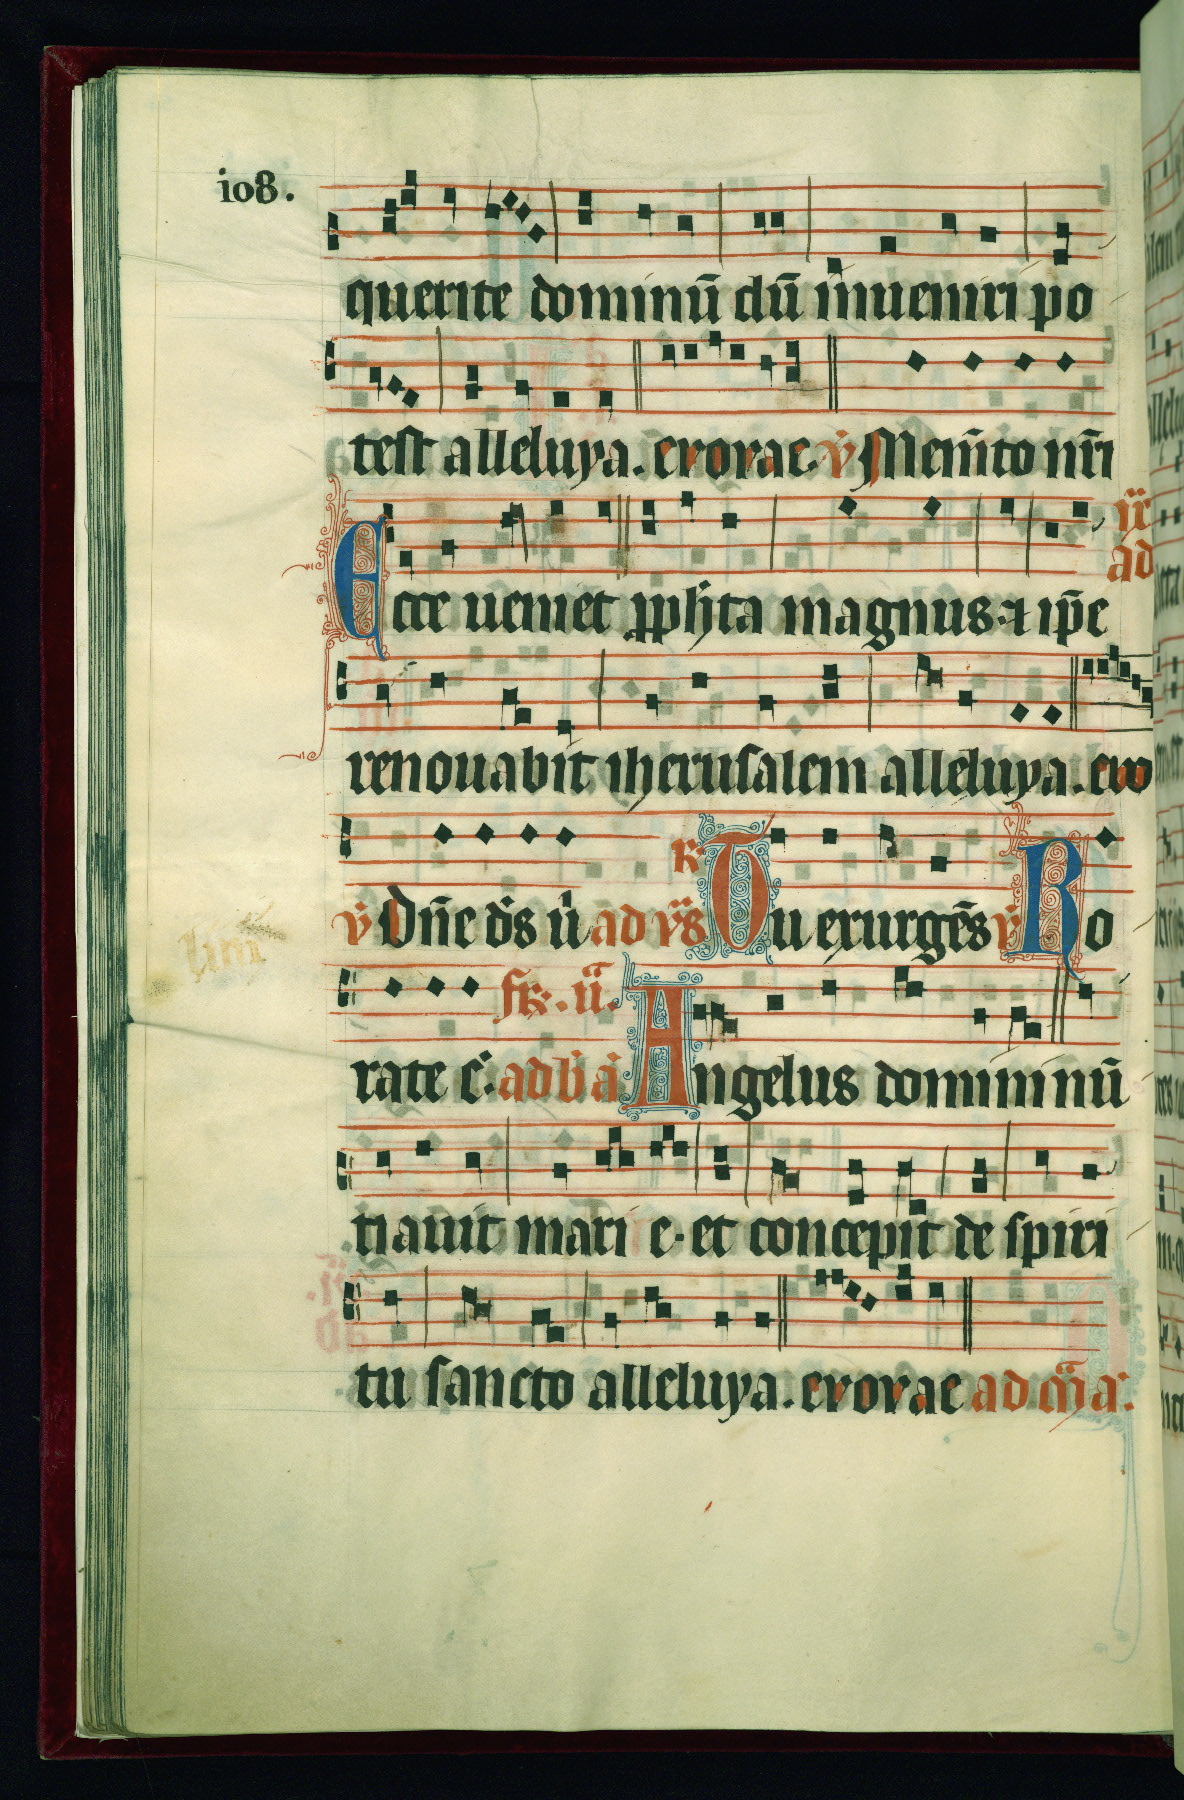 io8.
querite dominū dū inueniri po
test alleluya. evovae. v̇ Mem̄to nr̄i
ix
ad
Ecce ueniet ꝓph̄ta magnus ⁊ ip̄e
renouabit iherusalem alleluya. evo
v̇ Dn̄e ds̄ ū ad vs̄ R Tu exurgēs v̇ Ro
rate c̄. ad b̄ ā Angelus domini nū
tiauit marie. et concepit de spiri
tu sancto alleluya. evovae ad